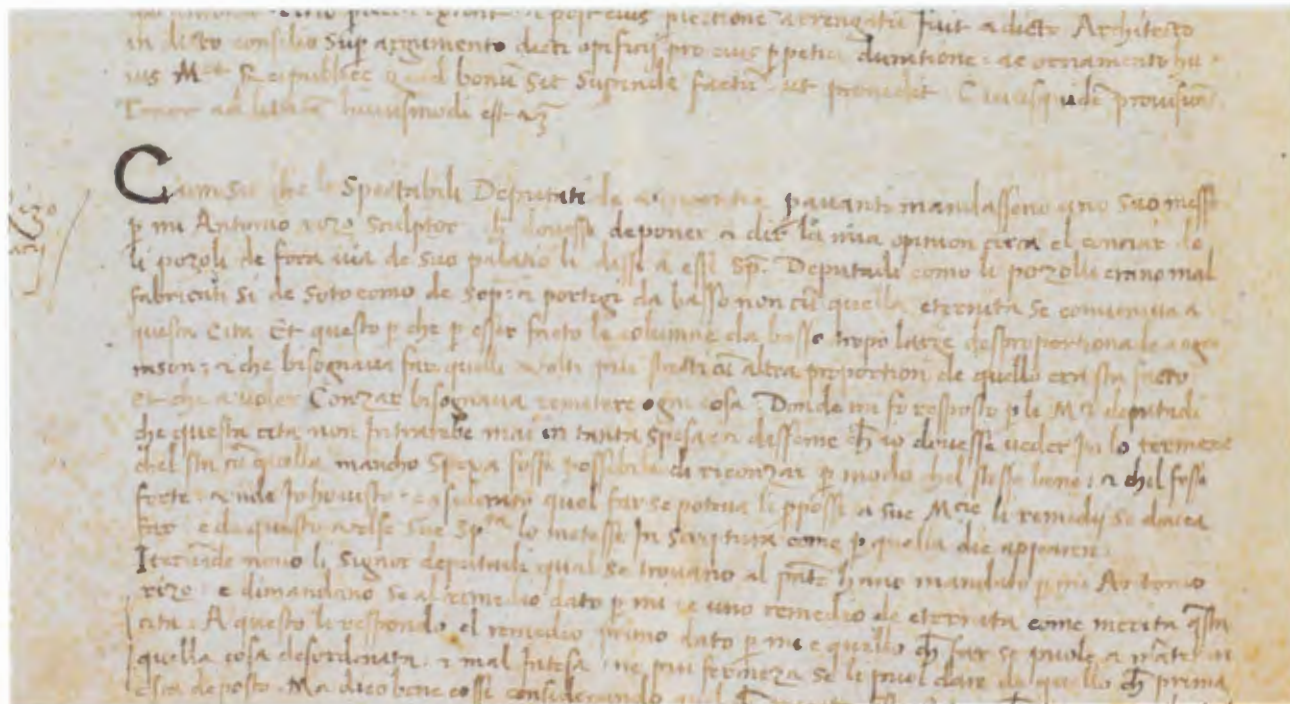 fuit a dicto Architecto
in dicto consilio sup argumento dicti opificij pro eius ppetua duratione ac ornamento hu
ius Mce Reipublice quod bonum sit facta ut providit Cuiusquidem provision
Tenor ad litteram huiusmodi est
Cum sit che li Spectabili Deputati de pavanti mandasseno uno suo messo
p mi Antonio rizo sculptor ch dovesse deponer a dir la mia opinion circa el conzar de
li pozoli de fora via de suo palatio li dissi a essi Sp. Deputadi como li pozolli erano mal
fabricati si de soto como de sopra portegi da basso non cum quella eternita se conveniva a
questa cita Et questo p che p esser facto le columne da basso tropo large desproportionade a ogni
rason: che bisognava far quelli volti piu cum altra proportion de quello era sta facto
et che a voler Conzar bisognava remetere ogni cosa. Donde mi fo resposto p li Mci deputadi
che questa cita non Intrarebe mai in tanta spesa a disseme ch io dovesse veder In lo termene
chel sta cum quella mancho spexa fosse possibile di riconzar p modo chel stesse bene: a chel fosse
forte: unde Io ho visto considerato quel far se poteva li pposi a sue Mcie li remedij se dovea
far: e de questo volse sue Spta lo metesse In scriptura come p quella die apparere.
Iterum de novo li Signor deputadi qual se trovano al pnte have mandato p mi Antonio
rizo: e dimandano se al remedio dato p mi e uno remedio de eternita come merita qsta
cita: A questo li respondo el remedio primo dato p mi e quello ch far se puole a
quella cosa desordenata: mal Intesa: ne piu fermeza se li puol dare de quello ch prima
e sta deposto. Ma dico bene cossi considerando